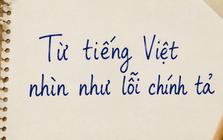 Từ tiếng Việt
nhìn như lỗi chính tả